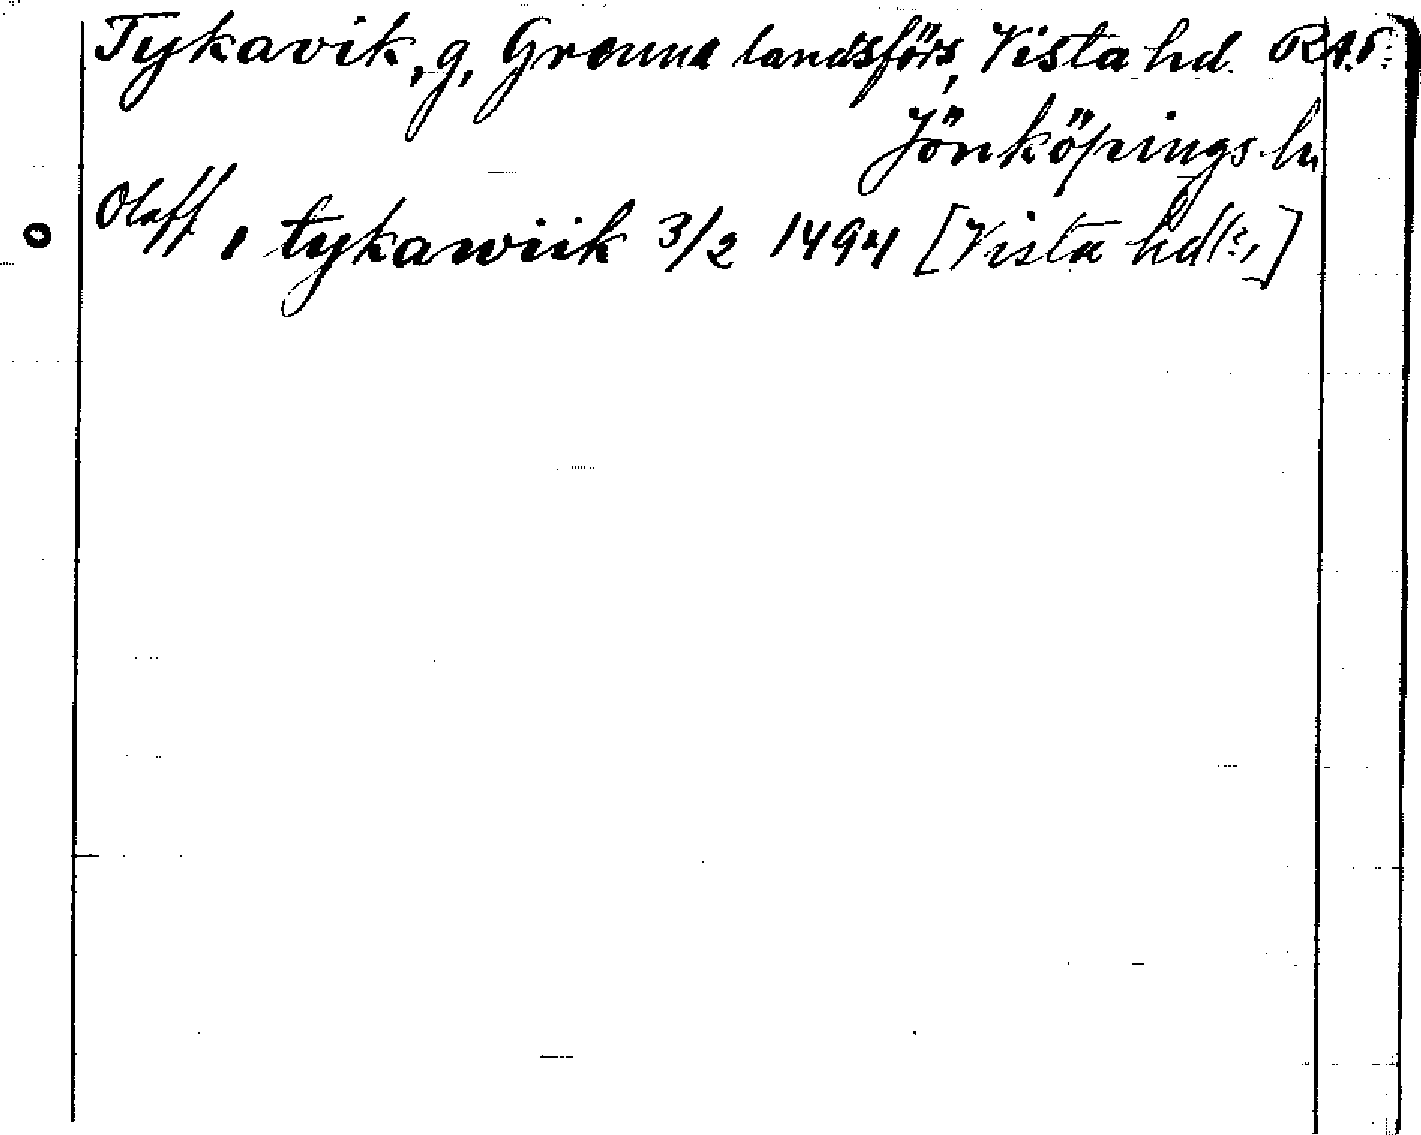 Tykavik, g, Grenna landsförs, Vista hd. RAP.
Jönköpings ln
Olaff i tykawiik 3/2 1494 [Vista hd(:,]